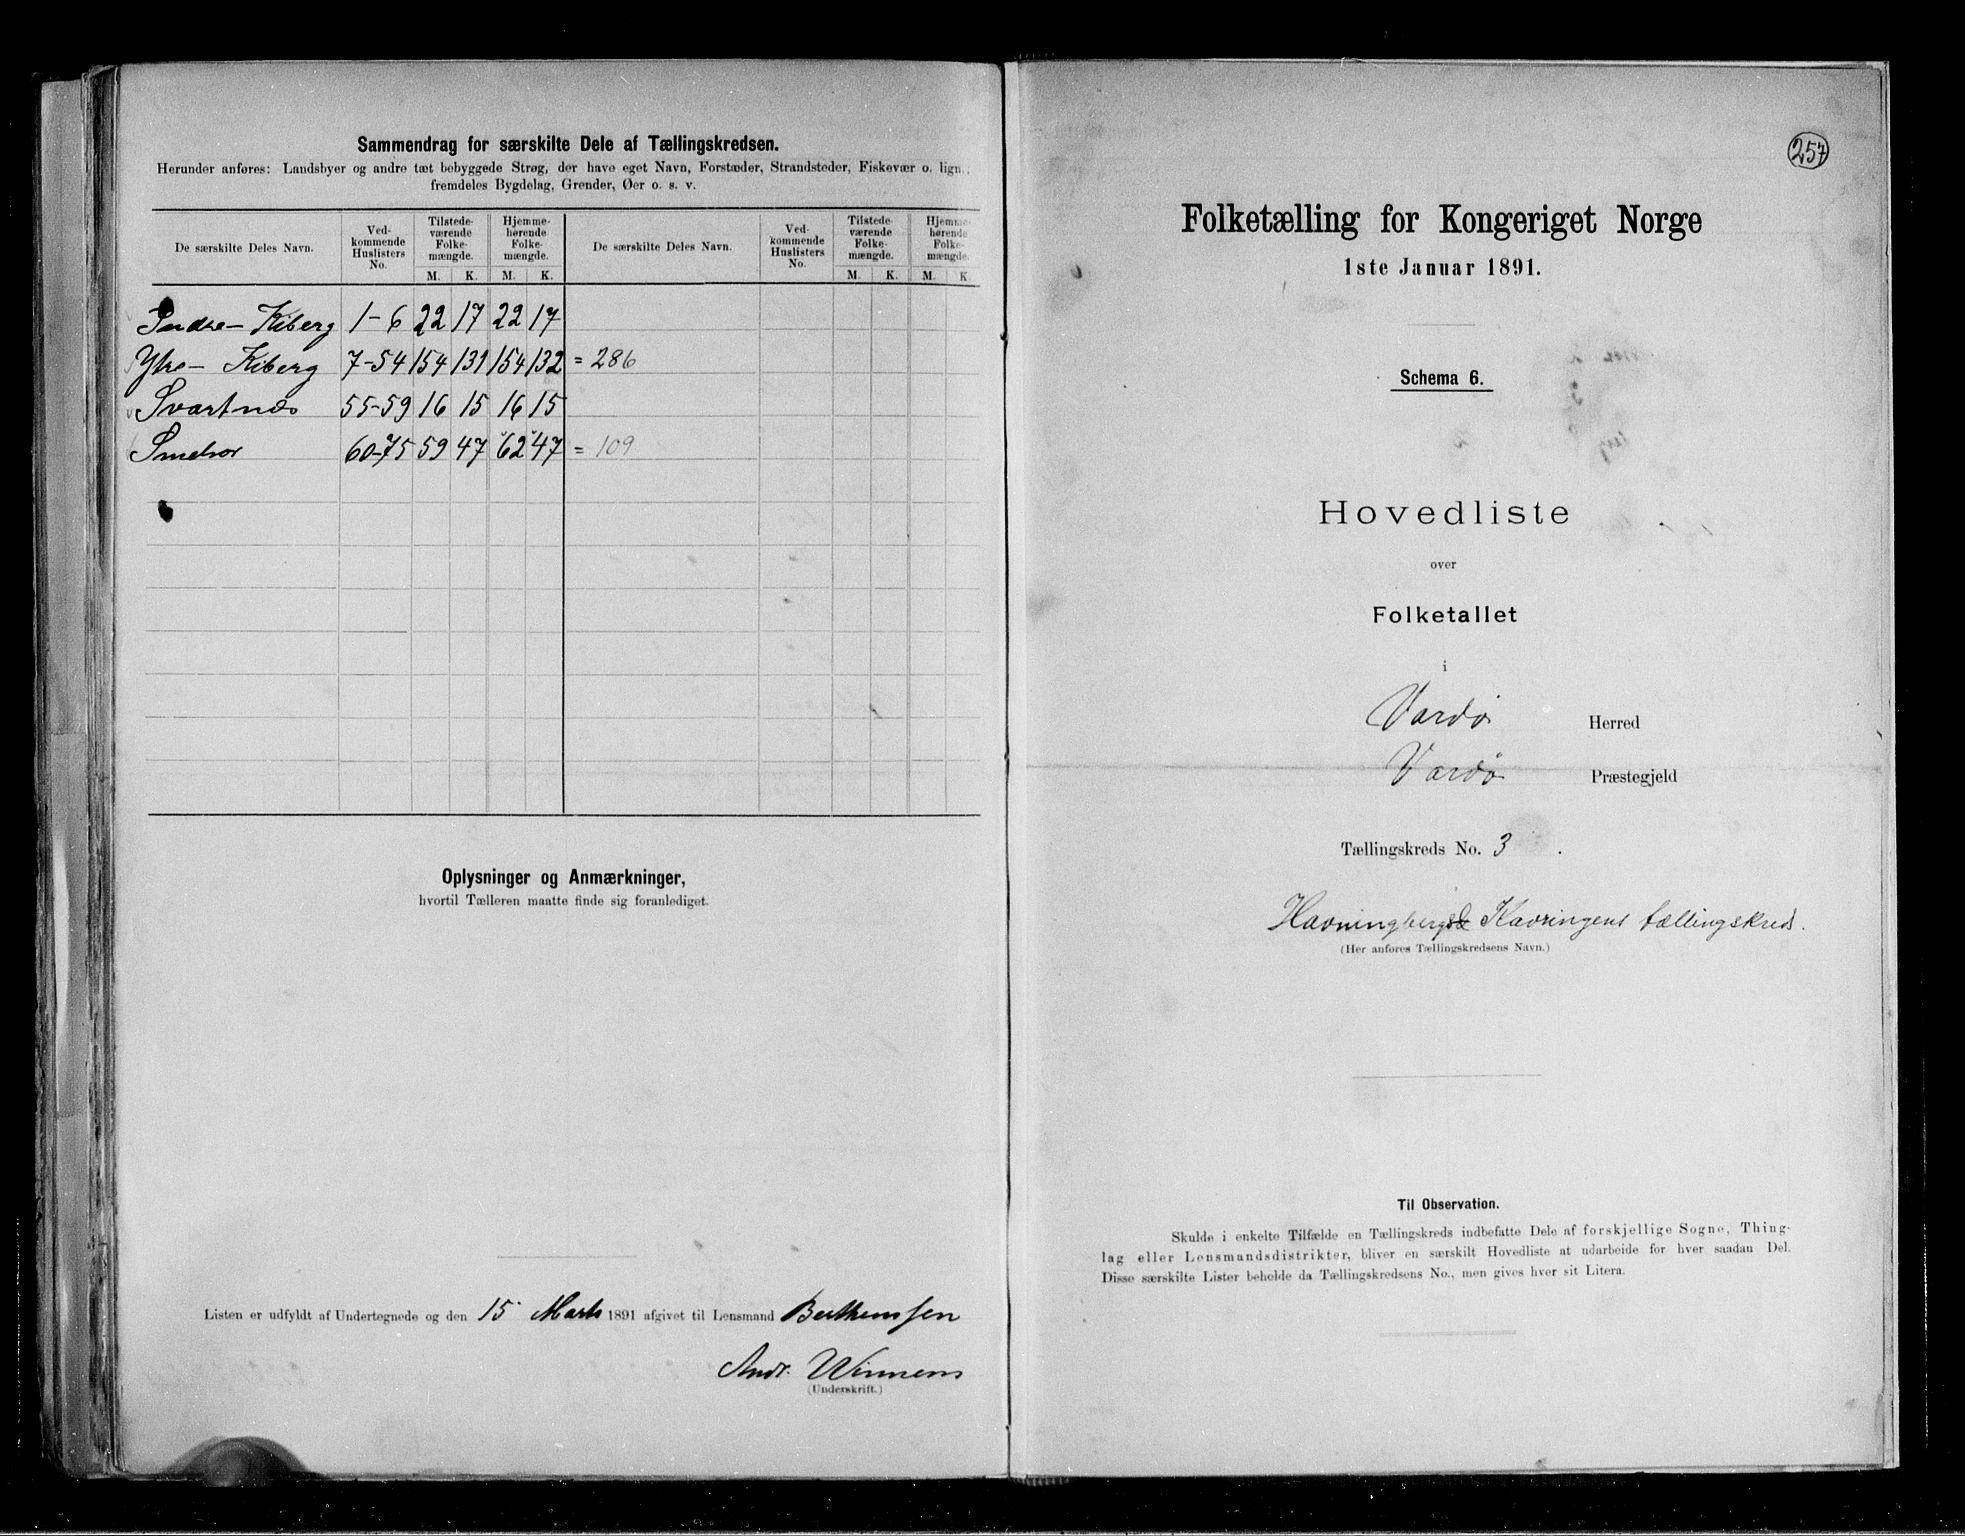 Sammendrag for særskilte Dele af Tællingskredsen.
Herunder anføres: Landsbyer og andre tæt bebyggede Strøg, der have eget Navn, Forstæder, Strandsteder, Fiskevær o. lign.;
fremdeles Bygdelag, Grender, Øer o. s. v.
De særskilte Deles Navn. Ved-kommende Huslisters No. Tilstede-værende Folke-mængde. M. K. Hjemme-hørende Folke-mængde. M. K. De særskilte Deles Navn. Ved-kommende Huslisters No. Tilstede-værende Folke-mængde. M. K. Hjemme-hørende Folke-mængde. M. K.
Indre- Kiberg 1-6 22 17 22 17
Ytre- Kiberg 7-54 154 131 154 132 = 286
Svartnæs 55-59 16 15 16 15
Smelror 60-75 59 47 62 47 = 109
Oplysninger og Anmærkninger,
hvortil Tælleren maatte finde sig foranlediget.
Listen er udfyldt af Undertegnede og den 15 Marts 1891 afgivet til Lensmand Berthenssen
Andr. Winnem
(Underskrift.)
257
Folketælling for Kongeriget Norge
1ste Januar 1891.
Schema 6.
Hovedliste
over
Folketallet
i
Vardø Herred
Vardø Præstegjeld
Tællingskreds No. 3.
Havningberg Kavringens tællingskreds.
(Her anføres Tællingskredsens Navn.)
Til Observation.
Skulde i enkelte Tilfælde en Tællingskreds indbefatte Dele af forskjellige Sogne, Thing-
lag eller Lensmandsdistrikter, bliver en særskilt Hovedliste at udarbeide for hver saadan Del.
Disse særskilte Lister beholde da Tællingskredsens No., men gives hver sit Litera.